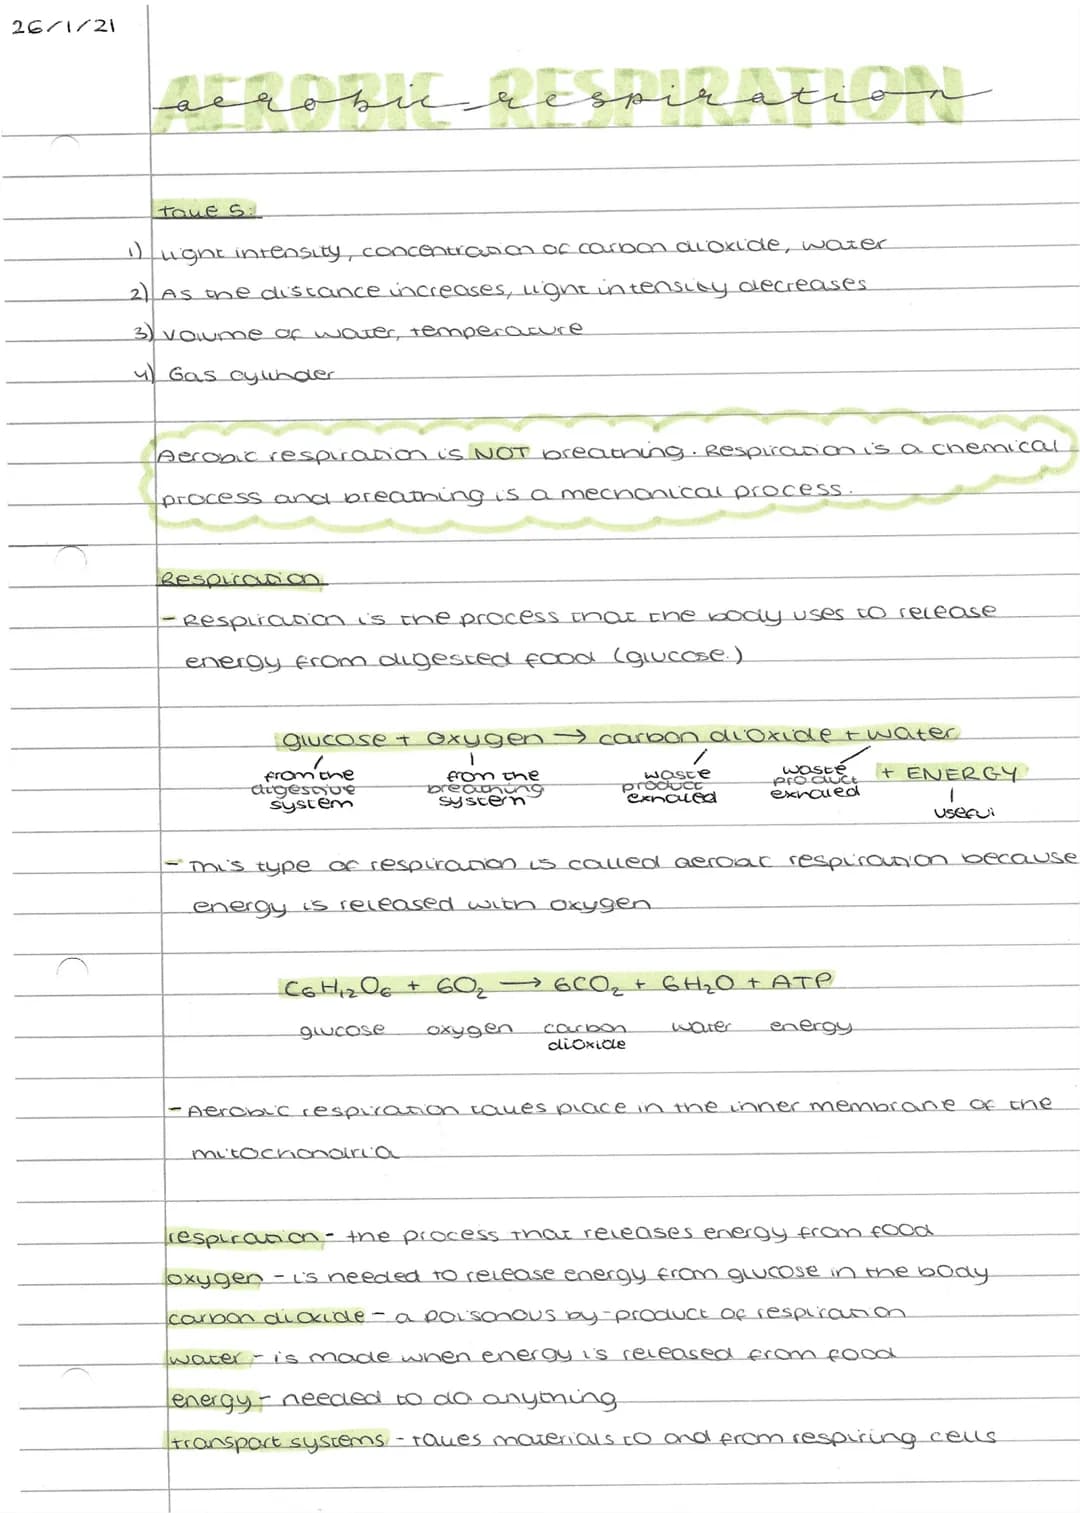 26/1/21
AEROBIC RESPIRATION
aerobic respiration
Take 5:
1) Light intensity, concentration of carbon dioxide, water
2) As the distance increases, light intensity decreases
3) Volume of water, temperature
4) Gas cylinder
Aerobic respiration is NOT breathing. Respiration is a chemical
process and breathing is a mechanical process.
Respiration
- Respiration is the process that the body uses to release
energy from digested food (glucose.)
glucose + oxygen → carbon dioxide + water
from the digestive system
from the breathing system
waste product exhaled
waste product exhaled
+ ENERGY
useful
- This type of respiration is called aerobic respiration because
energy is released with oxygen
C6H12O6 + 6O2 → 6CO2 + 6H2O + ATP
glucose oxygen carbon dioxide water energy
- Aerobic respiration takes place in the inner membrane of the
mitochondria
respiration - the process that releases energy from food
oxygen - is needed to release energy from glucose in the body
carbon dioxide - a poisonous by-product of respiration
water - is made when energy is released from food
energy - needed to do anything
transport systems - takes materials to and from respiring cells